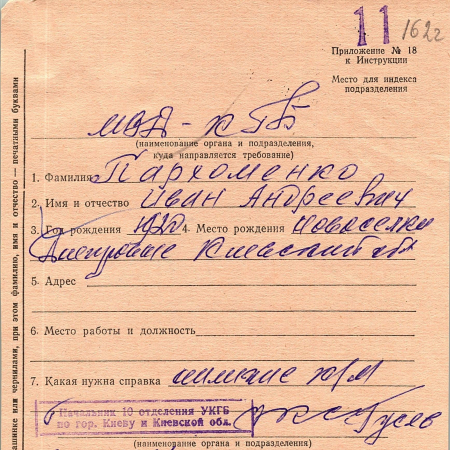 11 162г
Приложение № 18
к Инструкции
Место для индекса
подразделения
МВД - КГБ
(наименование органа и подразделения,
куда направляется требование)
1. Фамилия Пархоменко
2. Имя и отчество Иван Андреевич
3. Год рождения 4. Место рождения Новоселки
Киевской обл
5. Адрес
6. Место работы и должность
7. Какая нужна справка
Начальник 10 отделения УКГБ
по гор. Киеву и Киевской обл. Гусев
(наименование органа и подразделения)
ашинке или чернилами, при этом фамилию, имя и отчество — печатными буквами